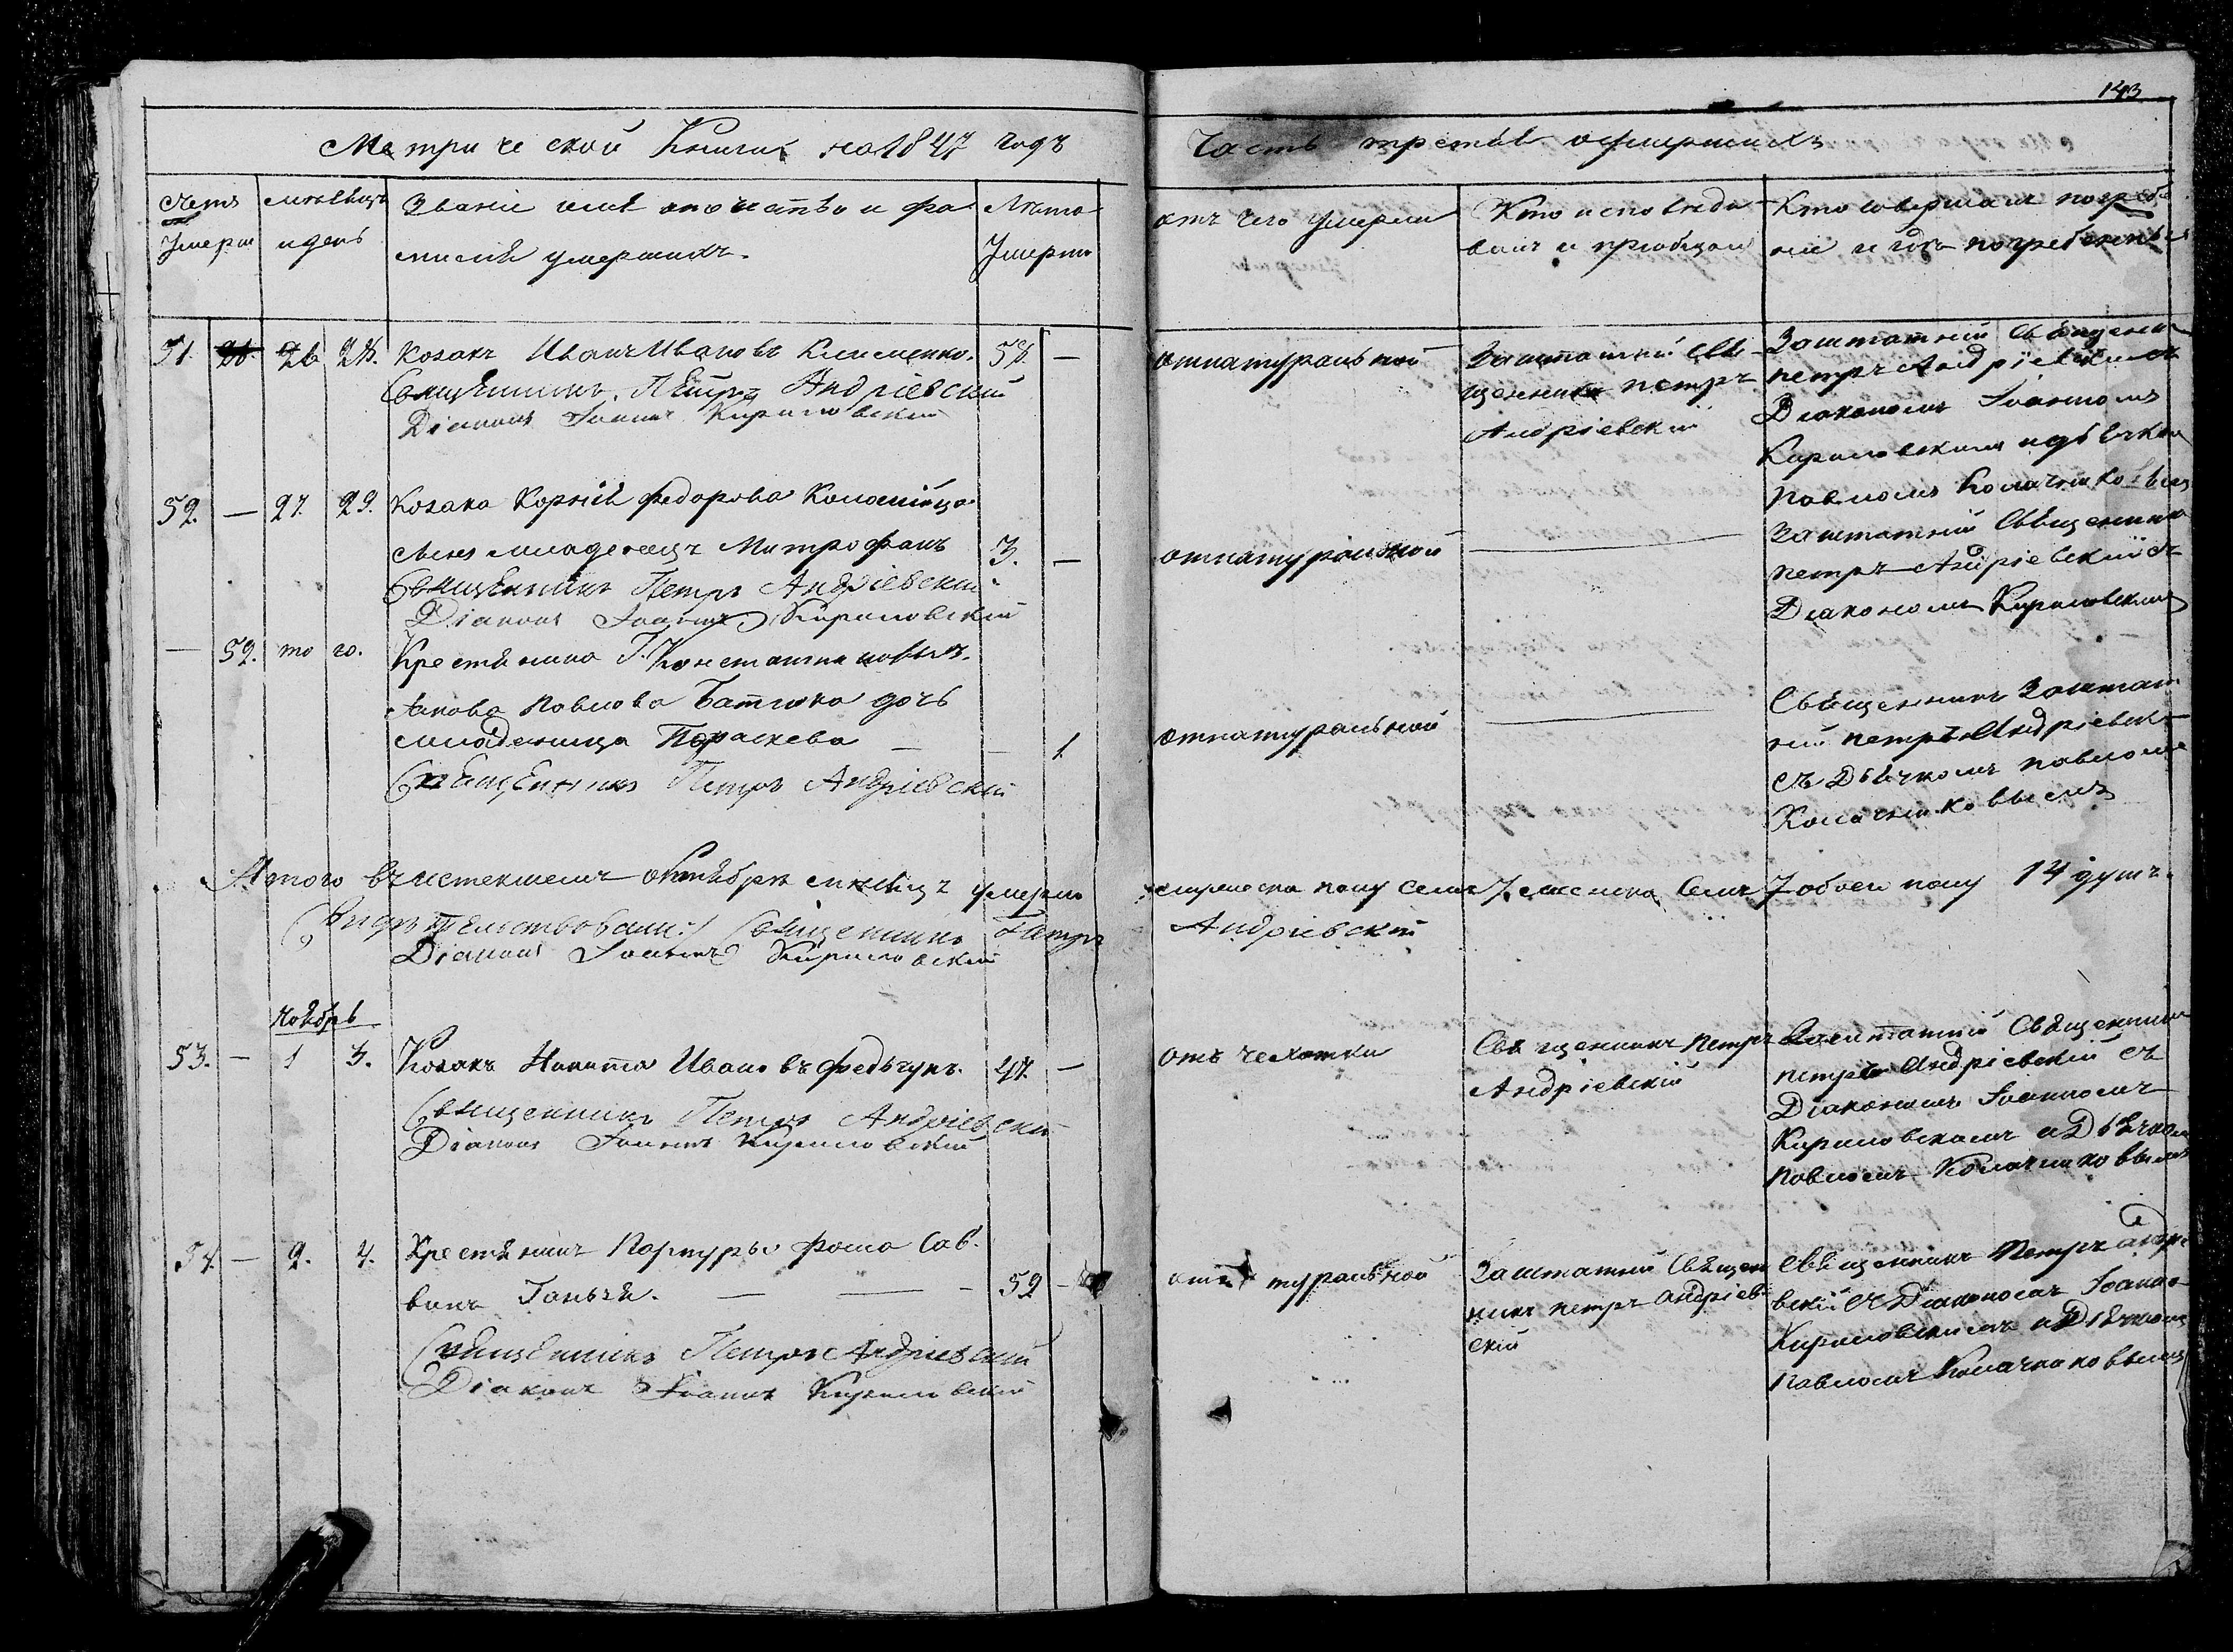 143
Метрической Книги на 1847 годъ
Часть третья о умершихъ
Счетъ Умерш
месяцъ и день
Званіе имя отечество и фа
милія умершихъ.
Лета Умерш
отъ чего умерли
Кто исповеды
валъ и пріобщалъ
Кто совершалъ погребе
ніе и где погребены
51. 26 28. Козакъ Иванъ Ивановъ Клименко. 58. —
Священникъ Петръ Андріевский
Діаконъ Іоаннъ Кириловский
отнатуральной
Заштатній Свя
щенникъ петръ
Андріевскій
Заштатній Священни
петръ Андріевскій съ
Діакономъ Іоанномъ
Кириловскимъ и дьячком
павломъ Колачниковым
52. — 27. 29. Козака Корнія федорова Коломійца
сынъ младенецъ Митрофанъ 3. —
Священникъ Петръ Андріевский
Діаконъ Іоаннъ Кириловский
отнатуральной
Заштатній Священника
петръ Андріевский съ
Діакономъ Кириловскимъ
— 52. то го. Крестянина Г. Константиновыч.
Якова павлова дочь
младеница Параскева — — 1
Священникъ Петръ Андріевский
отнатуральной
Священникъ Заштат
ній петръ Андріевск
съ Дьячкомъ павломъ
Колачниковымъ
А того въ истекшемъ октябре месяце умерло
мужеска полу семъ 7. женска семъ 7 обоего полу 14 душъ.
Свидетельствовали: Священникъ Петръ
Андріевский
Діаконъ Іоаннъ Кириловский
Ноябрь
53. — 1 3. Козакъ Никита Ивановъ федьчунъ. 47. —
Священникъ Петръ Андріевский
Діаконъ Іоаннъ Кириловский
отъ чехотки
Священникъ петръ
Андріевскій
Заштатній Священник
петръ Андріевскій съ
Діакономъ Іоанномъ
Кириловскимъ и Дьячком
павломъ Колачниковымъ
54 — 2. 4. Крестянинъ фома Сав.
винъ — — 52 —
Священникъ Петръ Андріевский
Діаконъ Іоаннъ Кириловский
Заштатній Священ
никъ петръ Андріев
скій
Священникъ петръ Андріе
вскій съ Діакономъ Іоанно
Кириловскимъ и Дьячкомъ
павломъ Колачниковымъ